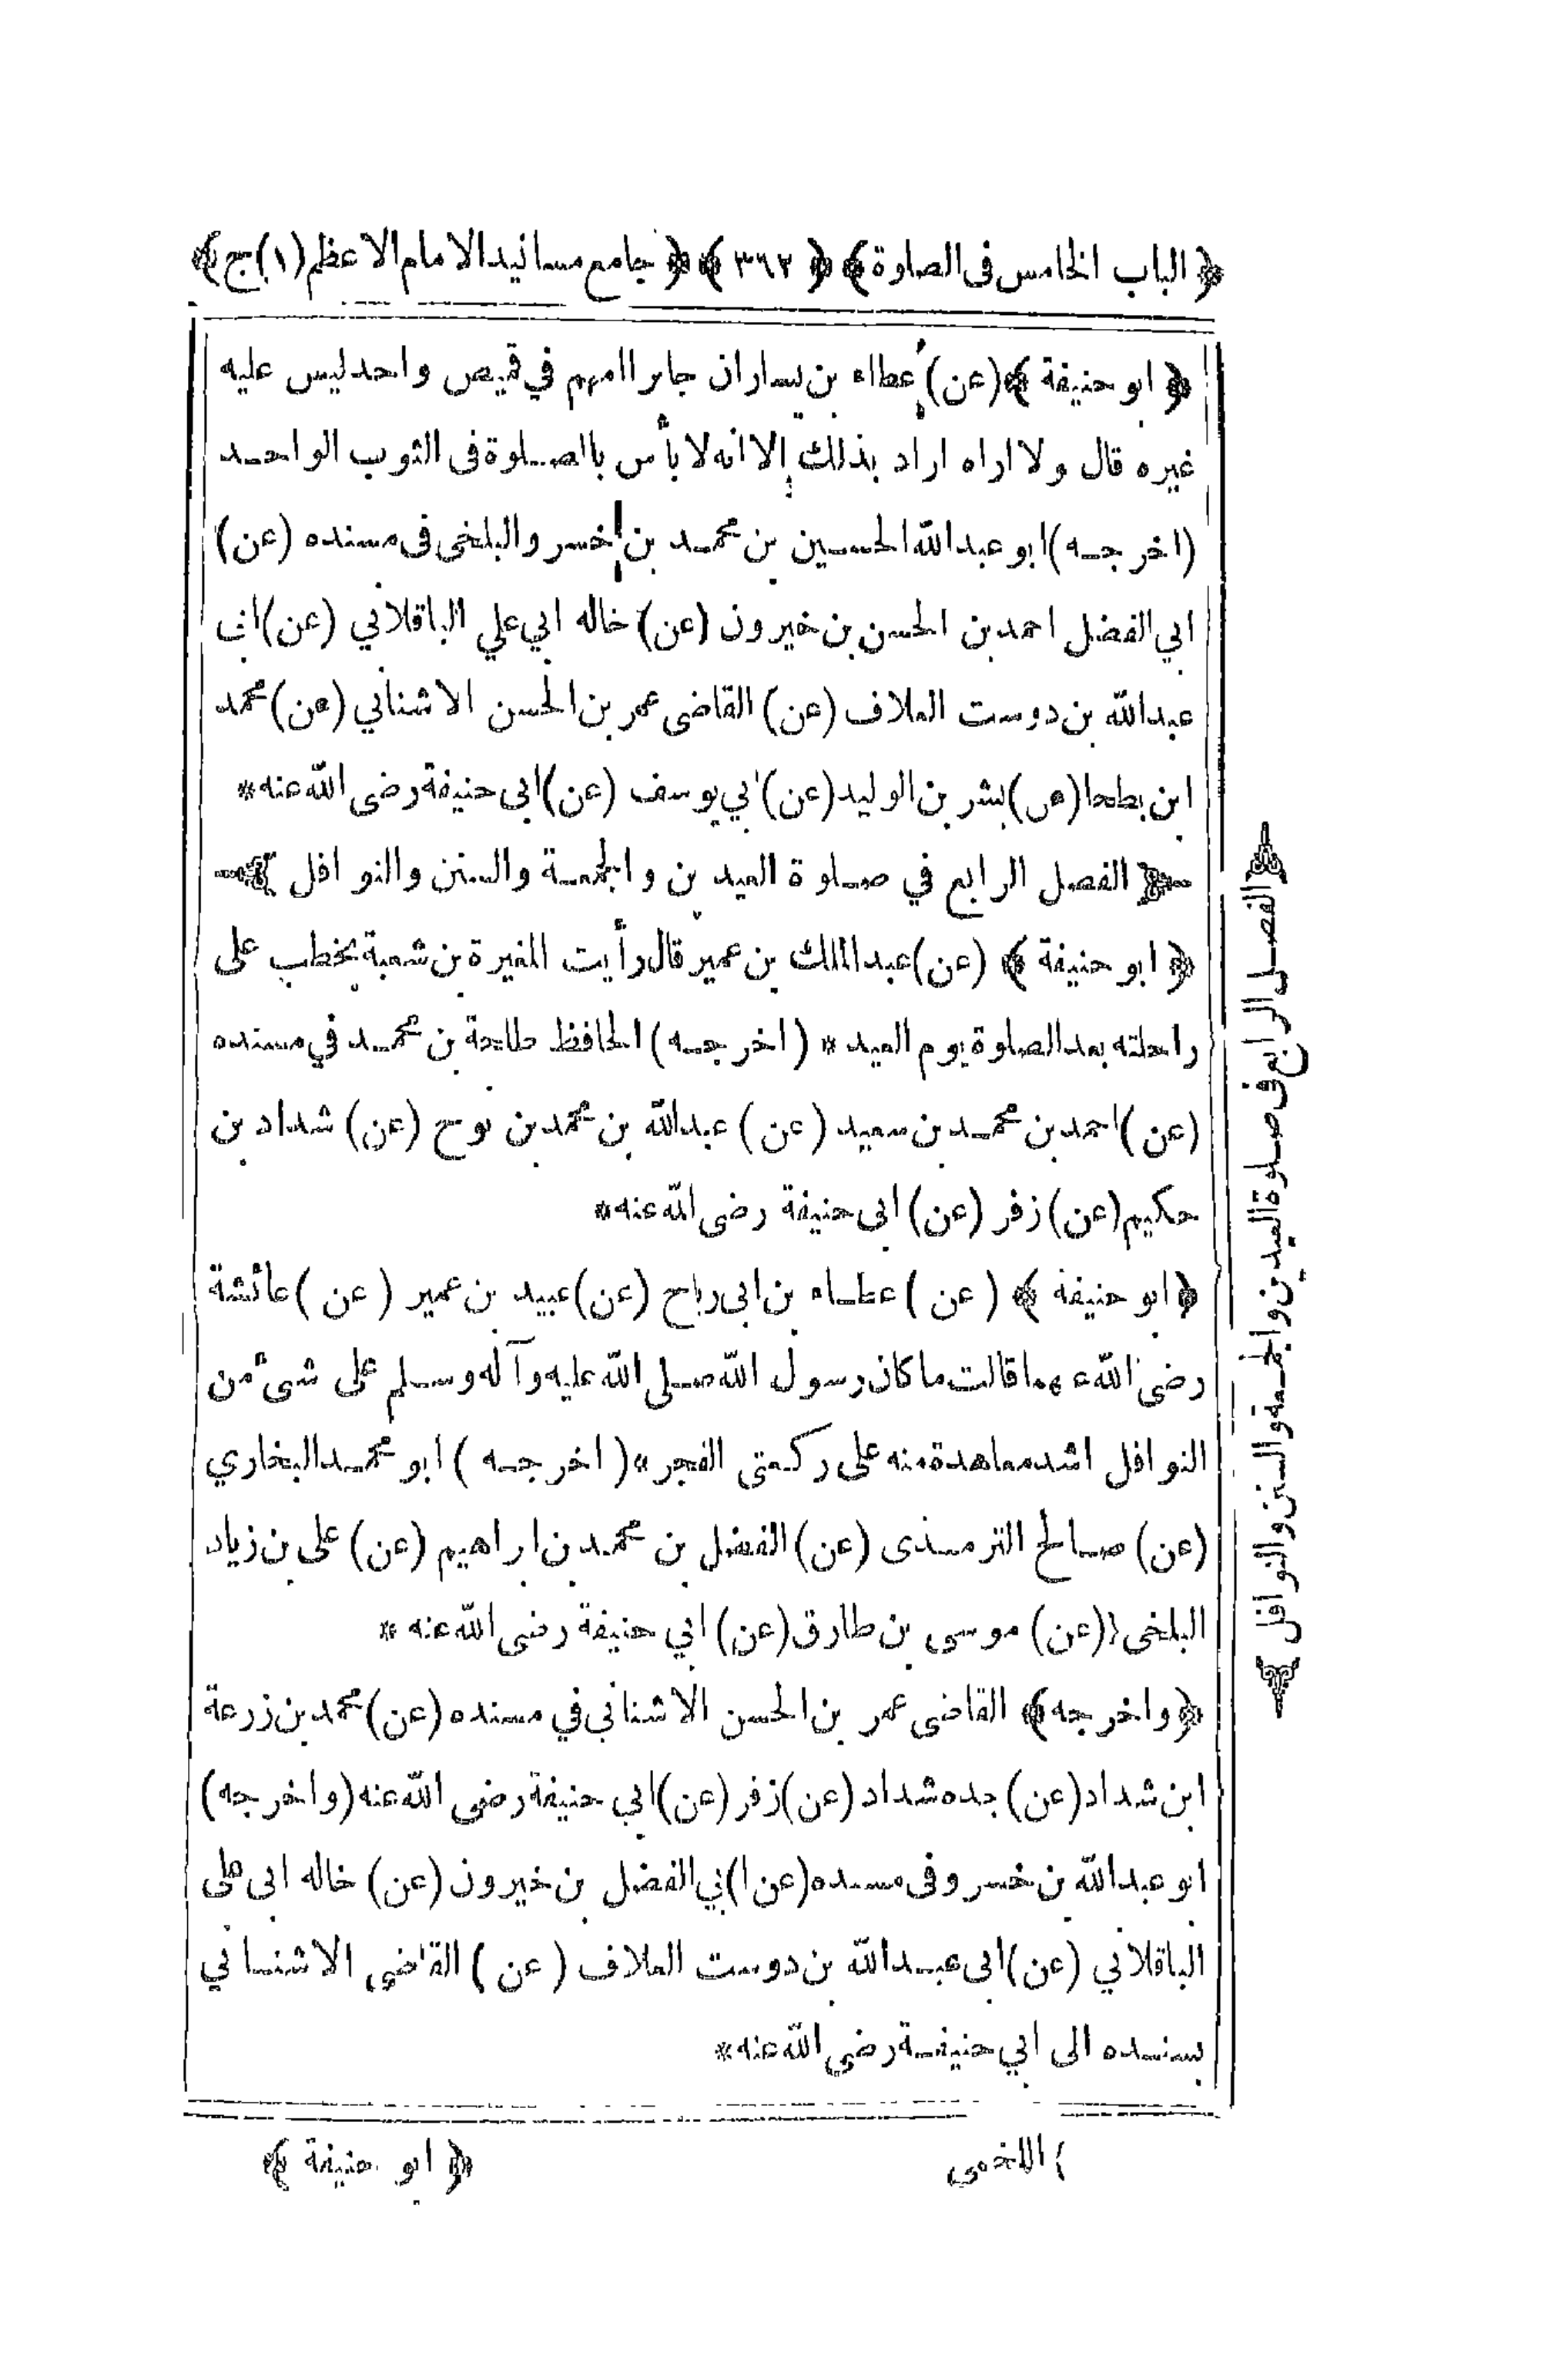 ﴿ الباب الخامس فى الصلوة ﴾ ﴿ ٣٦٢ ﴾ ﴿ جامع مسانيد الامام الاعظم (١) ج ﴾
﴿ ابو حنيفة ﴾ (عن) عطاء بن يسار ان جابرا امهم في قميص واحد ليس عليه
غيره قال ولا اراه اراد بذلك إلا انه لا بأس بالصلوة فى الثوب الواحد
(اخرجه) ابو عبد الله الحسين بن محمد بن خسرو البلخى فى مسنده (عن)
ابي الفضل احمد بن الحسن بن خيرون (عن) خاله ابي علي الباقلاني (عن) ابى
عبد الله بن دوست العلاف (عن) القاضى عمر بن الحسن الاشناني (عن) محمد
ابن بطحا (عن) بشر بن الوليد (عن) ابي يوسف (عن) ابى حنيفة رضى الله عنه *
﴿ الفصل الرابع في صلوة العيدين والجمعة والسنن والنوافل ﴾
﴿ ابو حنيفة ﴾ (عن) عبد الملك بن عمير قال رأيت المغيرة بن شعبة يخطب على
راحلته بعد الصلوة يوم العيد * (اخرجه) الحافظ طلحة بن محمد في مسنده
(عن) احمد بن محمد بن سعيد (عن) عبد الله بن محمد بن نوح (عن) شداد بن
حكيم (عن) زفر (عن) ابى حنيفة رضى الله عنه *
﴿ ابو حنيفة ﴾ (عن) عطاء بن ابى رباح (عن) عبيد بن عمير (عن) عائشة
رضى الله عنها قالت ما كان رسول الله صلى الله عليه وآله وسلم على شىء من
النوافل اشد معاهدة منه على ركعتى الفجر * (اخرجه) ابو محمد البخاري
(عن) صالح الترمذى (عن) الفضل بن محمد بن ابراهيم (عن) على بن زياد
البلخى { (عن) موسى بن طارق (عن) ابي حنيفة رضى الله عنه *
﴿ واخرجه ﴾ القاضى عمر بن الحسن الاشناني في مسنده (عن) محمد بن زرعة
ابن شداد (عن) جده شداد (عن) زفر (عن) ابي حنيفة رضى الله عنه (واخرجه)
ابو عبد الله بن خسرو فى مسنده (عن ا) بي الفضل بن خيرون (عن) خاله ابى على
الباقلاني (عن) ابى عبد الله بن دوست العلاف (عن) القاضى الاشناني
بسنده الى ابي حنيفة رضى الله عنه *
﴿ الفصل الرابع فى صلوة العيدين والجمعة والسنن والنوافل ﴾
﴿ ابو حنيفة ﴾